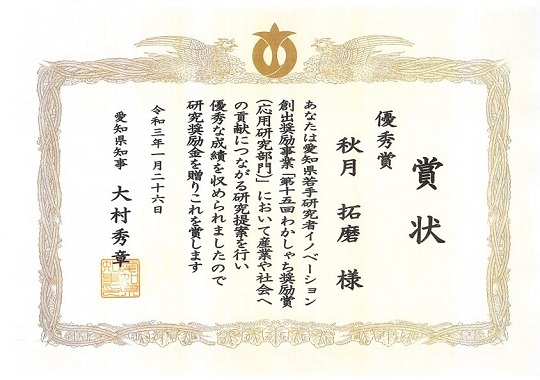 賞状
優秀賞
秋月 拓磨 様
あなたは愛知県若手研究者イノベーション
創出奨励事業「第十五回わかしゃち奨励賞
(応用研究部門)」において産業や社会へ
の貢献につながる研究提案を行い
優秀な成績を収められましたので
研究奨励金を贈りこれを賞します
令和三年一月二十六日
愛知県知事 大村秀章